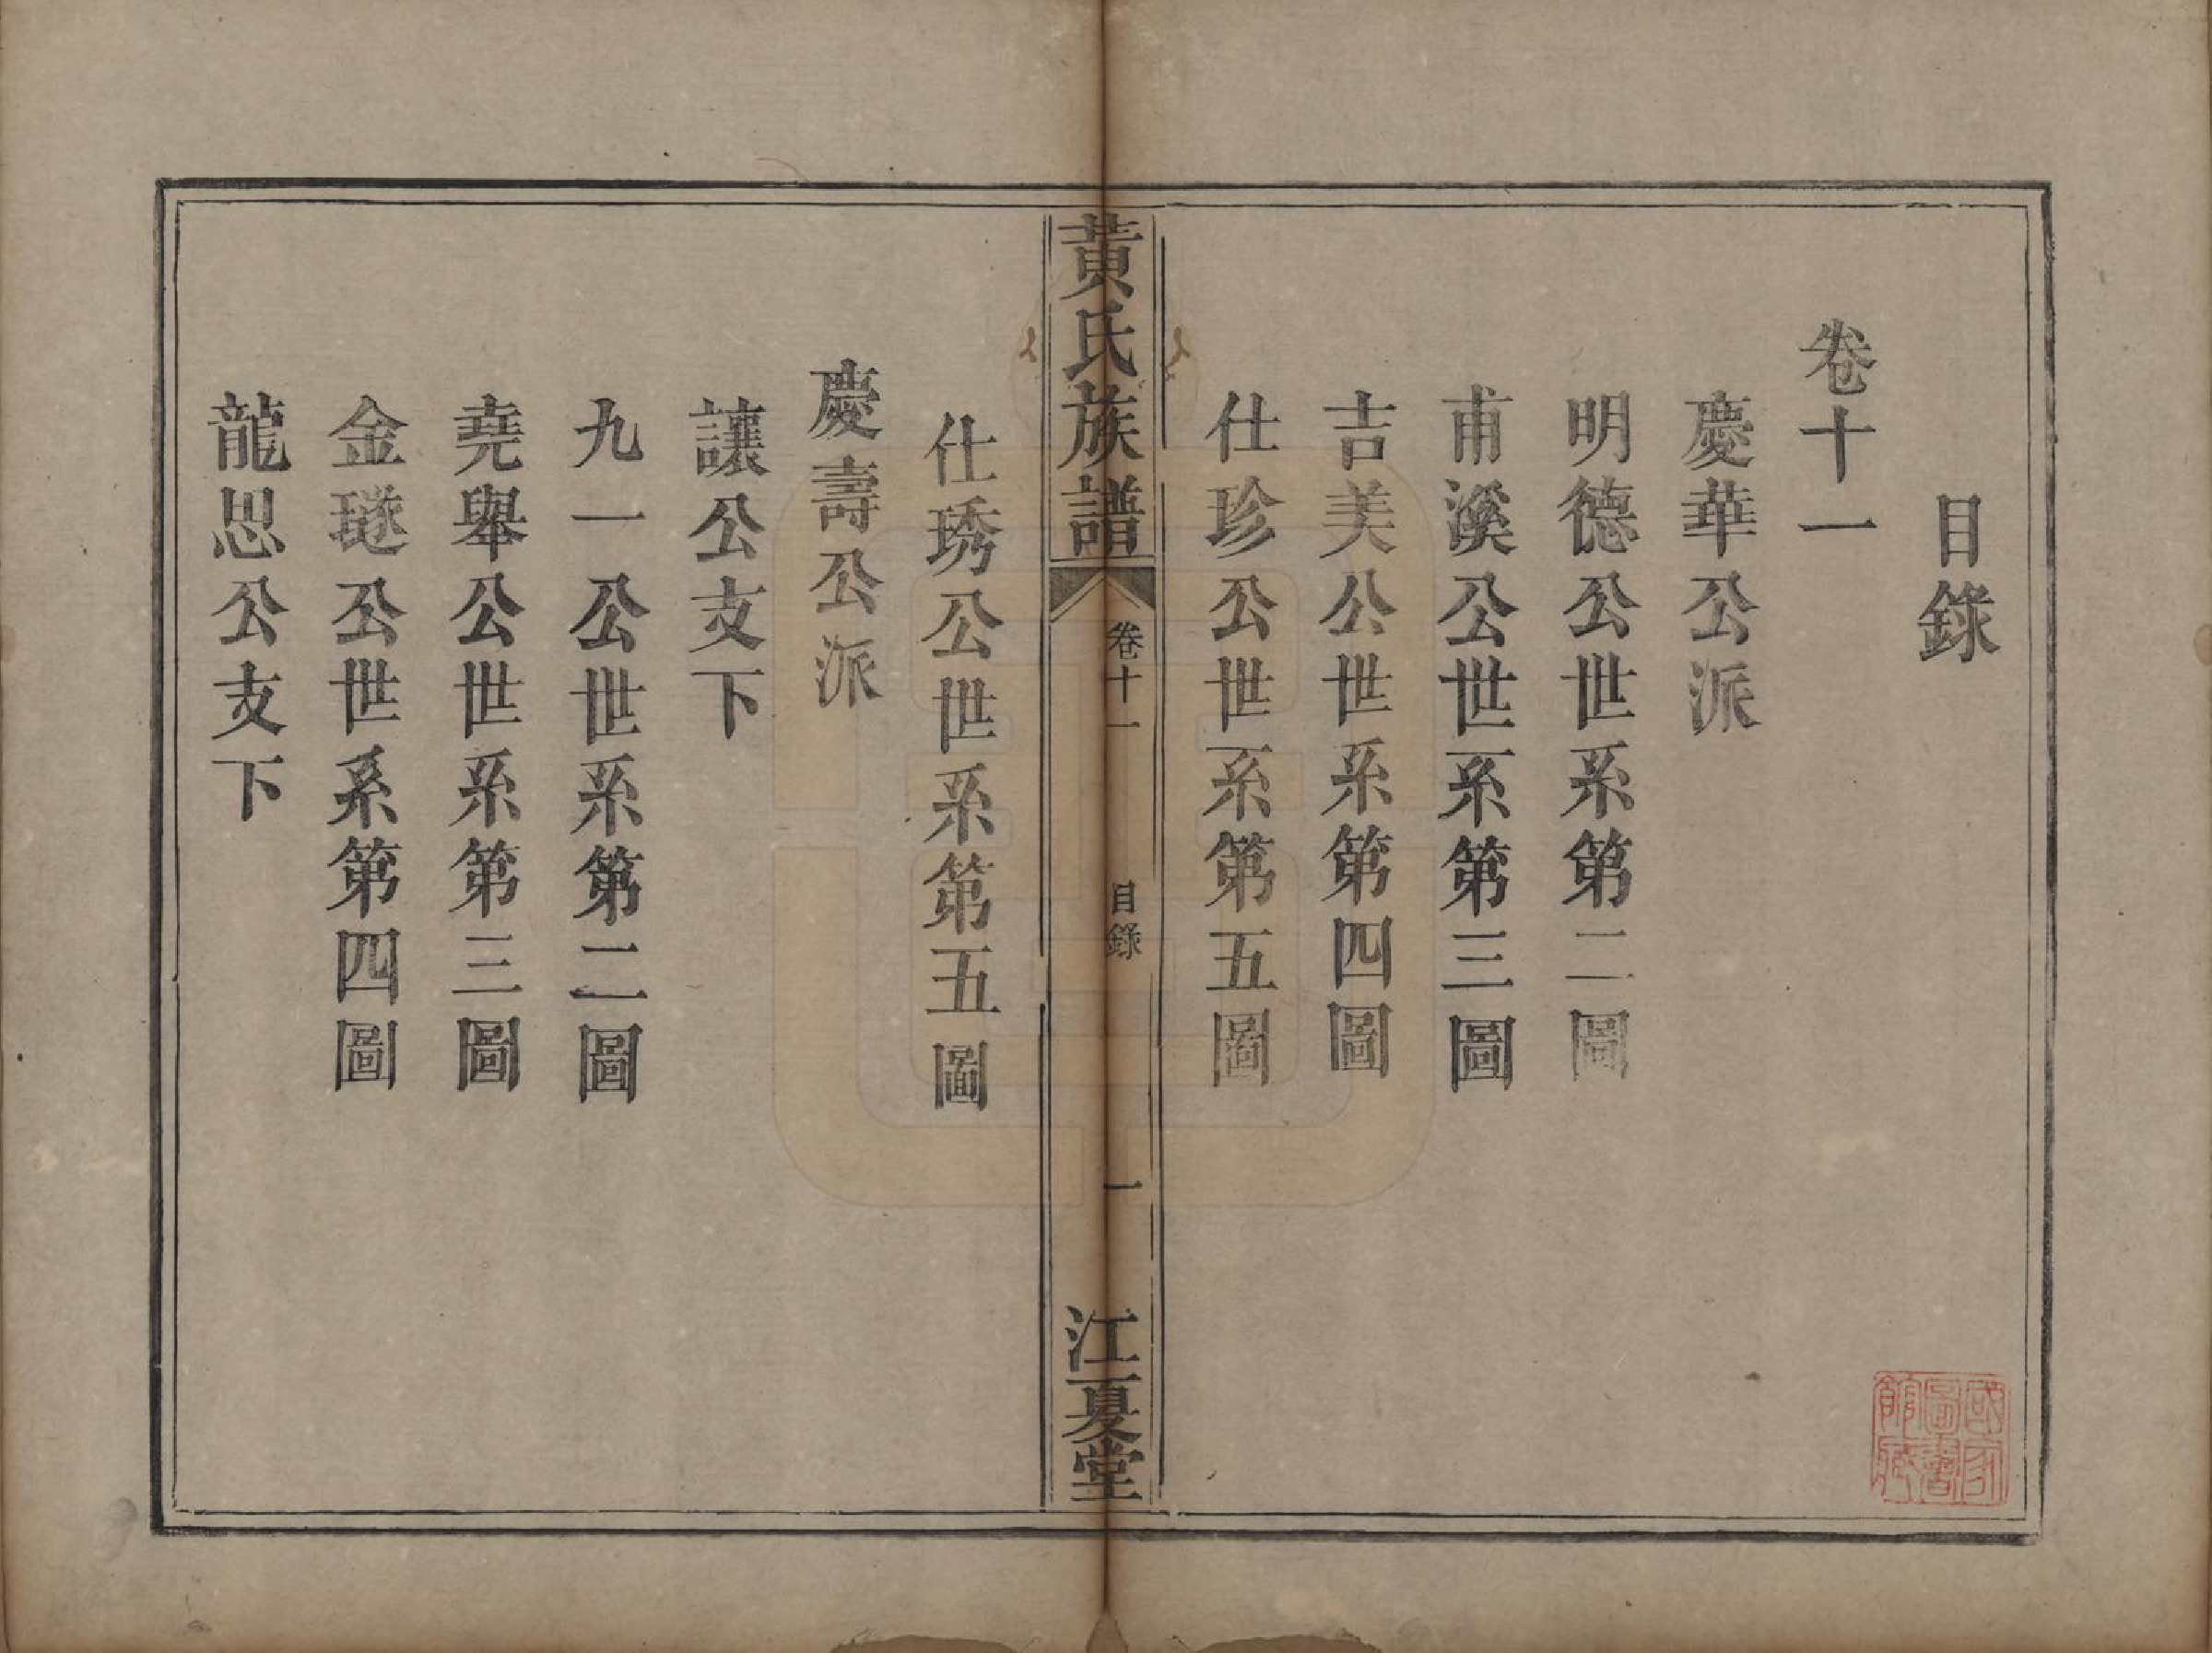 目錄
卷十一
慶華公派
明德公世系第二圖
甫溪公世系第三圖
吉美公世系第四圖
仕珍公世系第五圖
黃氏族譜
卷十一
目錄
一
江夏堂
仕琇公世系第五圖
慶壽公派
讓公支下
九一公世系第二圖
堯舉公世系第三圖
金璲公世系第四圖
龍思公支下
國家
圖書
館藏